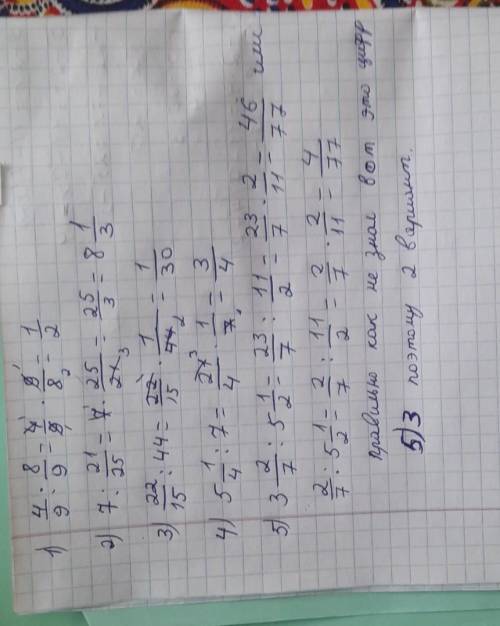 1) 4/9 : 8/9 = 4/9 · 9/8 = 1/2
2) 7 : 21/25 = 7 · 25/21 = 25/3 = 8 1/3
3) 22/15 : 44 = 22/15 · 1/44 = 1/30
4) 5 1/4 : 7 = 21/4 · 1/7 = 3/4
5) 3 2/7 : 5 1/2 = 23/7 : 11/2 = 23/7 · 2/11 = 46/77 или
2/7 : 5 1/2 = 2/7 : 11/2 = 2/7 · 2/11 = 4/77
правильно как не знал вот это цифр
5)3 поэтому 2 вариант.